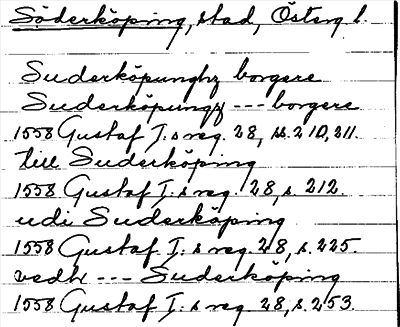 Söderköping, stad, Österg l.
Suderköpunghz borgere
Suderköpungz --- borgere
1558 Gustaf I:s reg. 28, ss. 210, 211.
till Suderköping
1558 Gustaf I:s reg. 28, s. 212.
udi Suderköping
1558 Gustaf I:s reg. 28, s. 225.
vedh --- Suderköping
1558 Gustaf I:s reg. 28, s. 253.